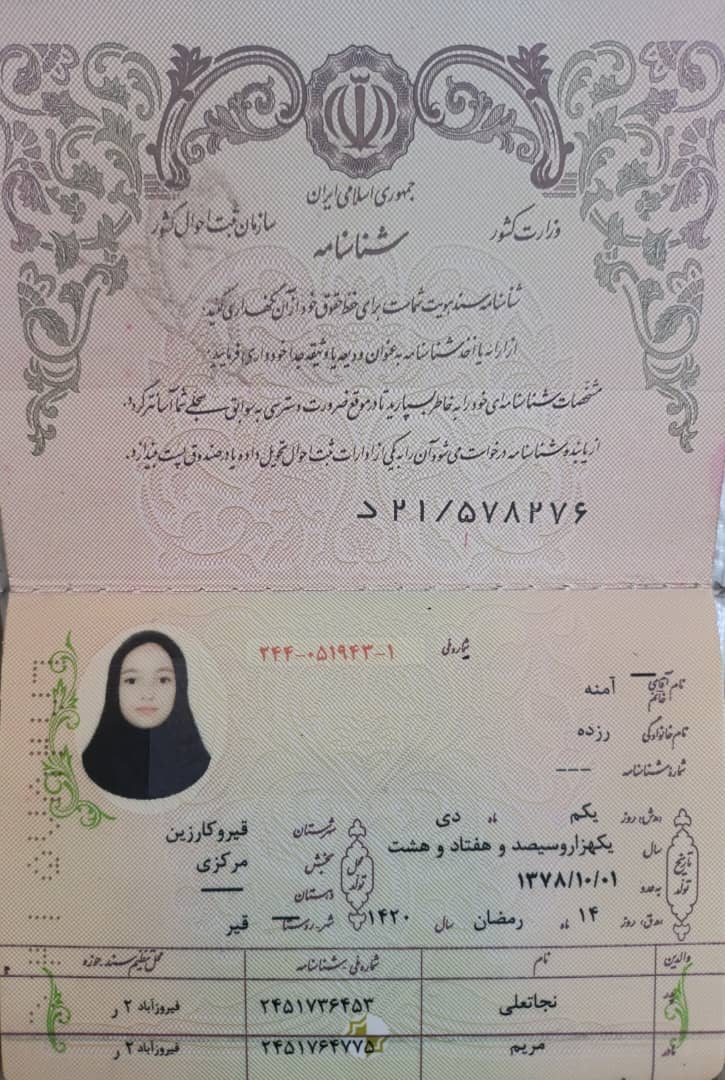 جمهوری اسلامی ایران
وزارت کشور
سازمان ثبت احوال کشور
شناسنامه
شناسنامه سند هویت شماست برای حفظ حقوق خود از آن نگهداری کنید.
از ارائه یا اخذ شناسنامه به عنوان ودیعه یا وثیقه جداً خودداری فرمایید.
مشخصات شناسنامه‌ای خود را به خاطر بسپارید تا در موقع ضرورت دسترسی به سوابق سجلی شما آسانتر گردد.
از یابنده شناسنامه درخواست می‌شود آن را به یکی از ادارات ثبت احوال تحویل داده یا در صندوق پست بیندازد.
د ۲۱/۵۷۸۲۷۶
شماره ملی ۲۴۴-۰۵۱۹۴۳-۱
نام آقای خانم آمنه
نام خانوادگی رزده
شماره شناسنامه ---
تاریخ تولد
روز یکم ماه دی
سال یکهزاروسیصد و هفتاد و هشت
به عدد ۱۳۷۸/۱۰/۰۱
روز ۱۴ ماه رمضان سال ۱۴۲۰
محل تولد
شهرستان قیروکارزین
بخش مرکزی
دهستان
شهر-روستا قیر
والدین نام شماره ملی-شناسنامه محل تنظیم سند-حوزه
پدر نجاتعلی ۲۴۵۱۷۳۶۴۵۳ فیروزآباد ۲ ر
مادر مریم ۲۴۵۱۷۶۴۷۷۵ فیروزآباد ۲ ر